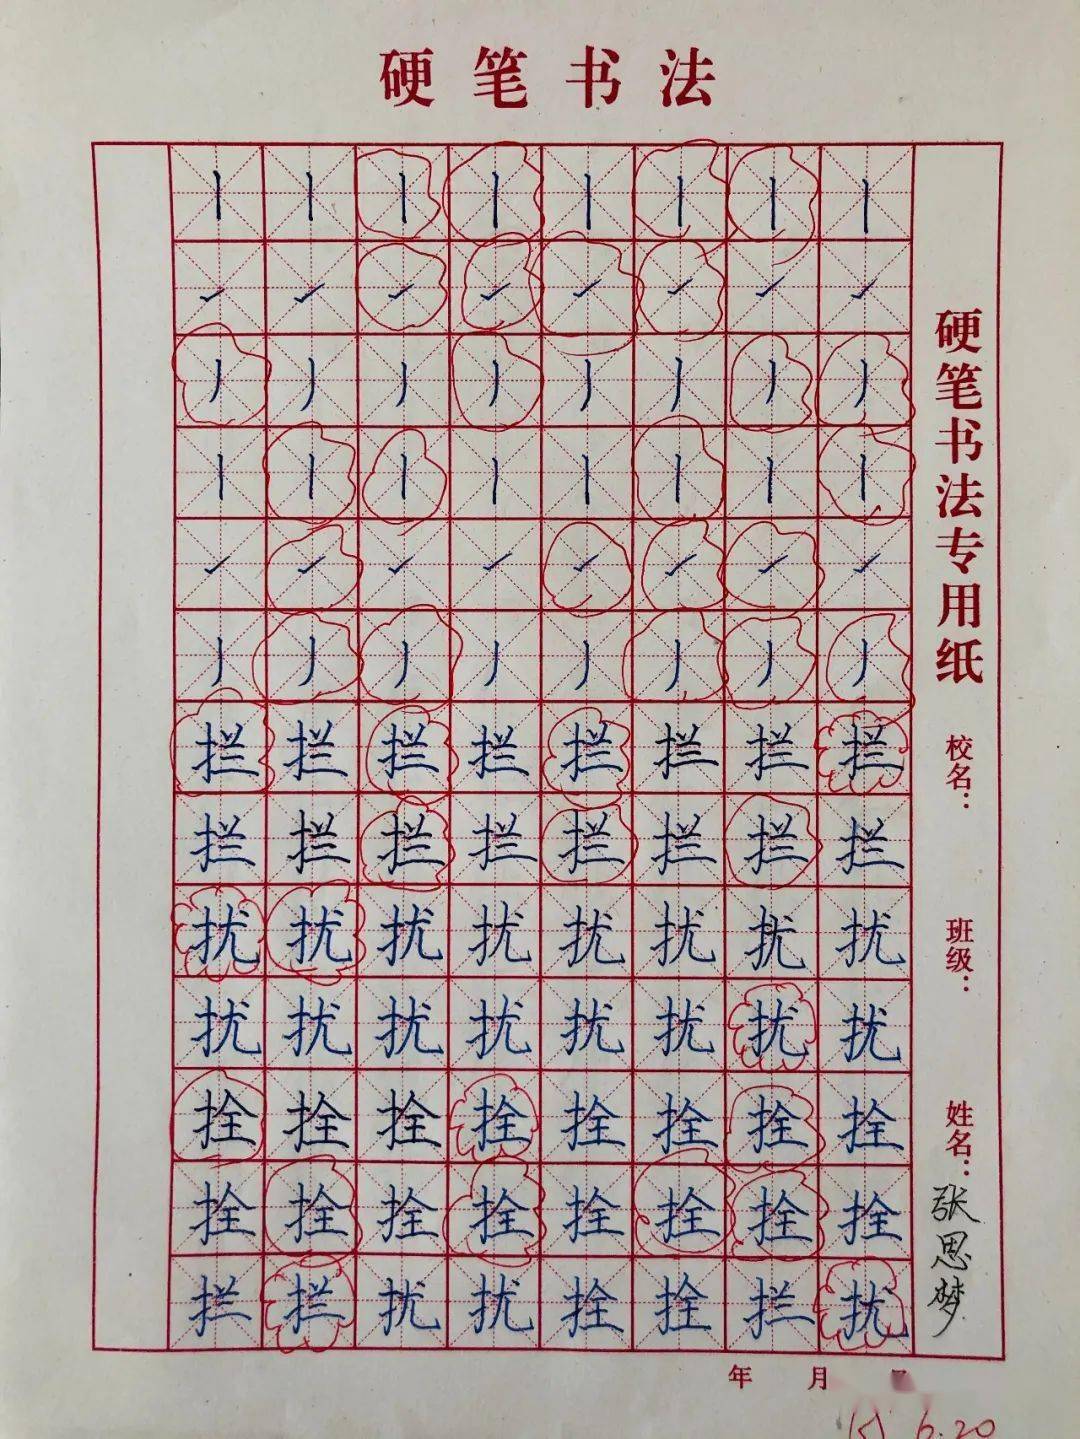 硬笔书法
丨丨丨丨丨丨丨丨
㇀㇀㇀㇀㇀㇀㇀㇀
丿丿丿丿丿丿丿丿
丨丨丨丨丨丨丨丨
㇀㇀㇀㇀㇀㇀㇀㇀
丿丿丿丿丿丿丿丿
拦拦拦拦拦拦拦拦
拦拦拦拦拦拦拦拦
扰扰扰扰扰扰扰扰
扰扰扰扰扰扰扰扰
拴拴拴拴拴拴拴拴
拴拴拴拴拴拴拴拴
拦拦扰扰拴拴拦扰
硬笔书法专用纸
校名：
班级：
姓名：张思梦
年 月
6.20